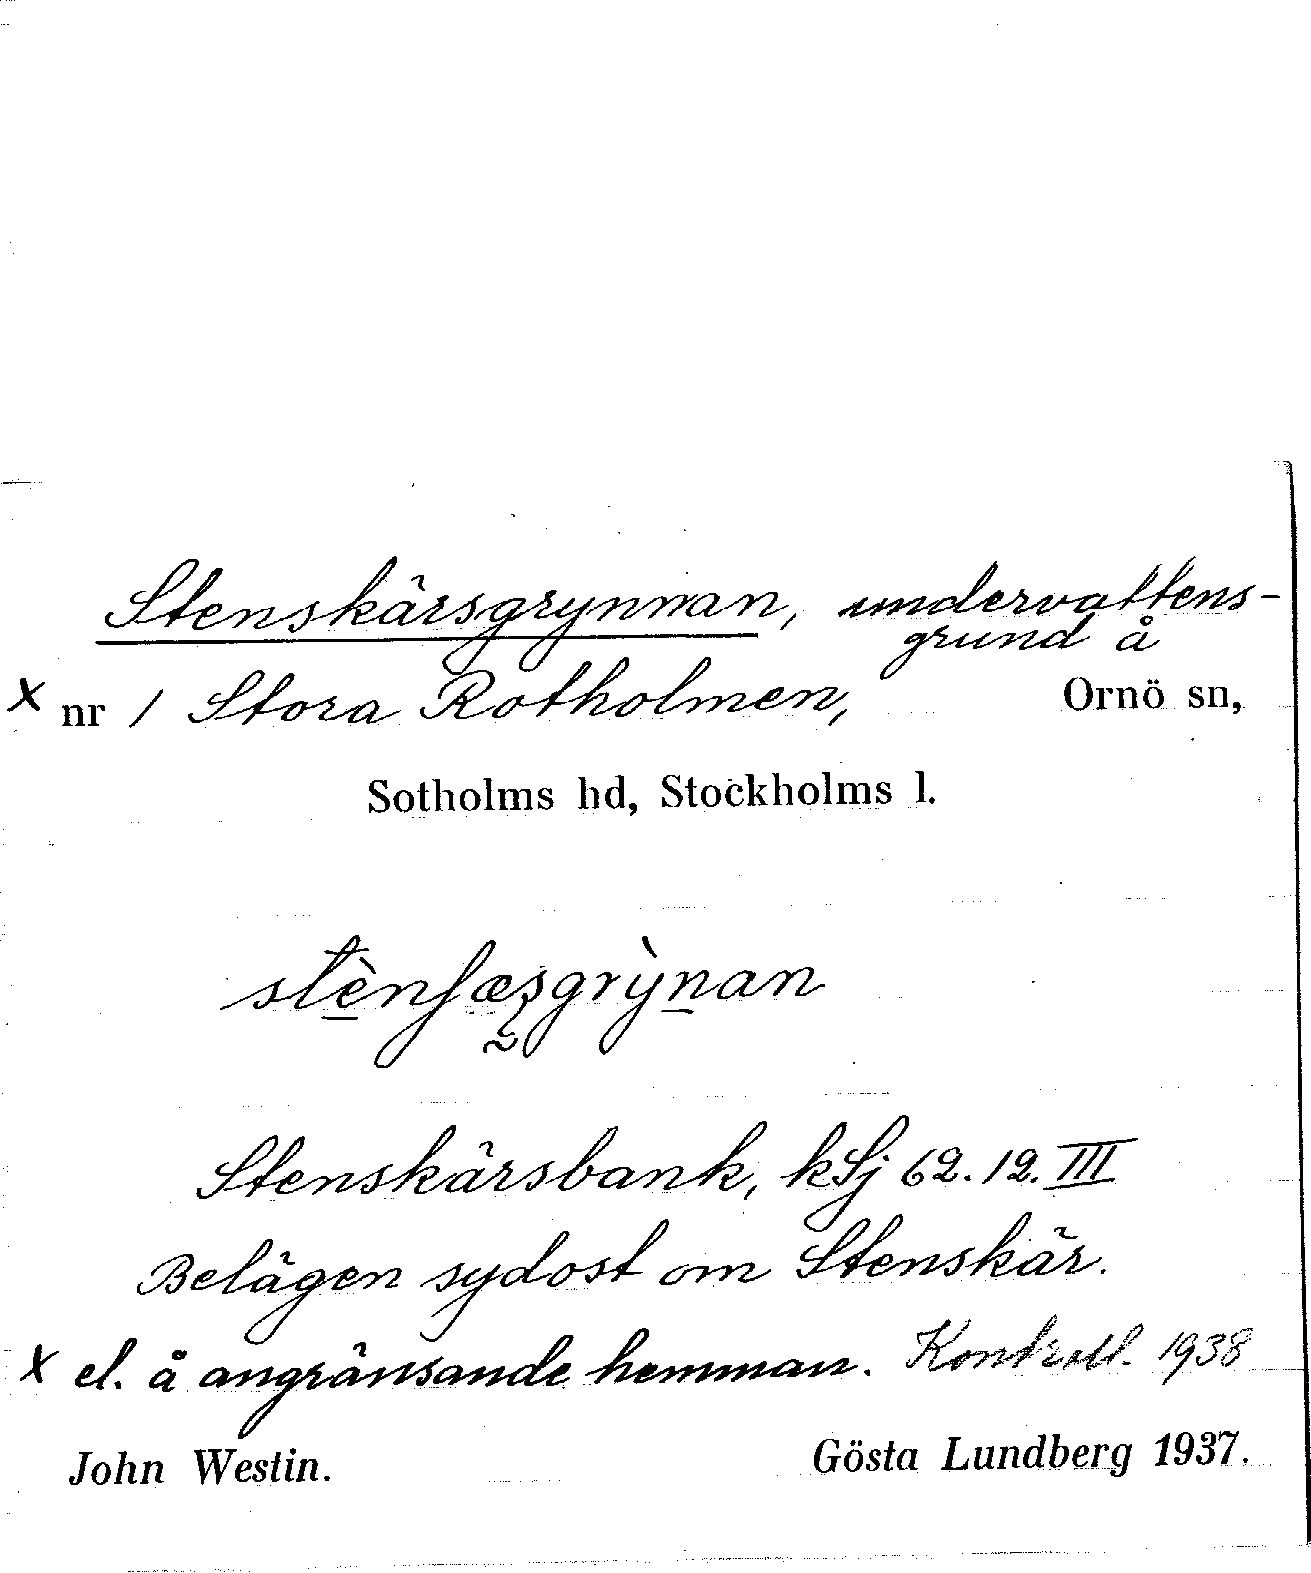 Stenskärsgrynnan, undervattens-
grund å
x nr 1 Stora Rotholmen, Ornö sn,
Sotholms hd, Stockholms l.
Stenskärsbank, kSj 62.12.III
Belägen sydost om Stenskär.
x el. å angränsande hemman. Kontroll. 1938
John Westin. Gösta Lundberg 1937.